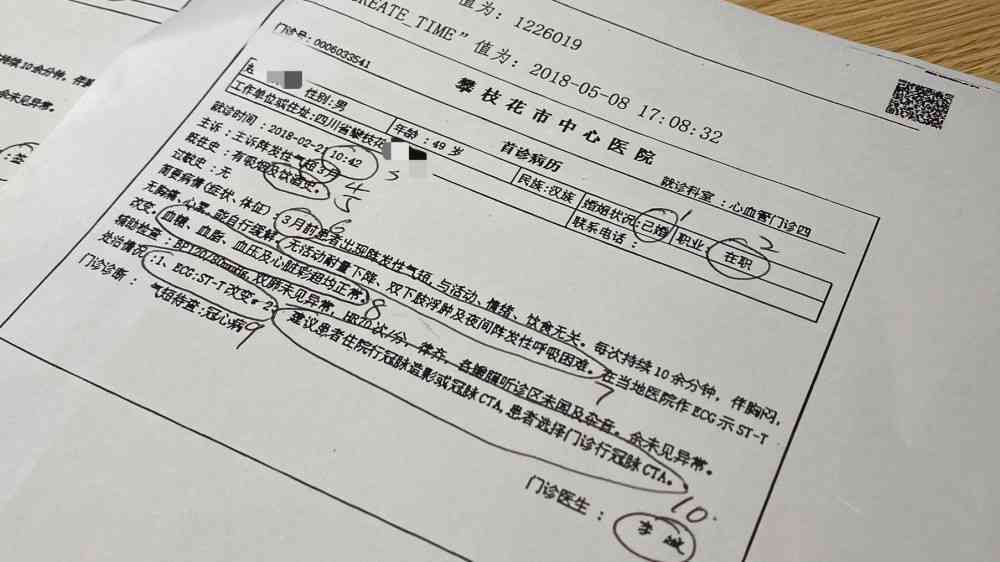 值为: 1226019
CREATE_TIME” 值为: 2018-05-08 17:08:32
攀枝花市中心医院
门诊号: 0006033541
首诊病历
就诊科室 : 心血管门诊四
性别:男
年龄 : 49 岁
民族:汉族
婚姻状况:已婚
职业:
在职
工作单位或住址:四川省攀枝花
联系电话 :
就诊时间 : 2018-02-21 10:42
主诉 : 主诉阵发性气短3月
既往史 : 有吸烟及饮酒史。
过敏史 : 无
简要病情(症状、体征) : 3月前患者出现阵发性气短, 与活动、情绪、饮食无关。每次持续10余分钟, 伴胸闷,
无胸痛、心累, 能自行缓解, 无活动耐量下降、双下肢浮肿及夜间阵发性呼吸困难。在当地医院作ECG示ST-T
改变, 血糖、血脂、血压及心脏彩超均正常。
辅助检查 : BP120/80mmHg, 双肺未见异常, 次/分, 律齐, 各瓣膜听诊区未闻及杂音。余未见异常。
处治情况 :1、ECG:ST-T改变。2、建议患者住院行冠脉造影或冠脉CTA, 患者选择门诊行冠脉CTA。
门诊诊断 : 气短待查:冠心病
门诊医生 :
1
2
3
4
5
6
7
8
9
10.
持续10余分钟, 伴胸
余未见异常。